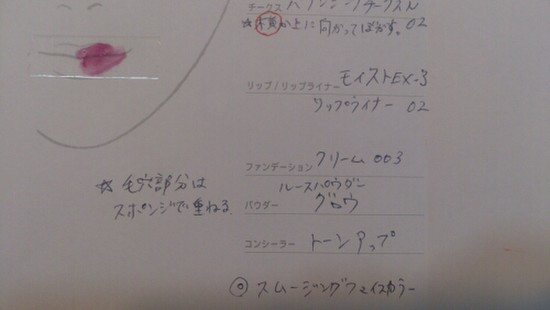 チークス
か上に向かってぼかす。02
リップ/リップライナー モイストEX-3
リップライナー 02
ファンデーション クリーム 003
☆毛穴部分は
スポンジで重ねる
ルースパウダー
パウダー グロウ
コンシーラー トーンアップ
◎ スムージングフェイスカラー